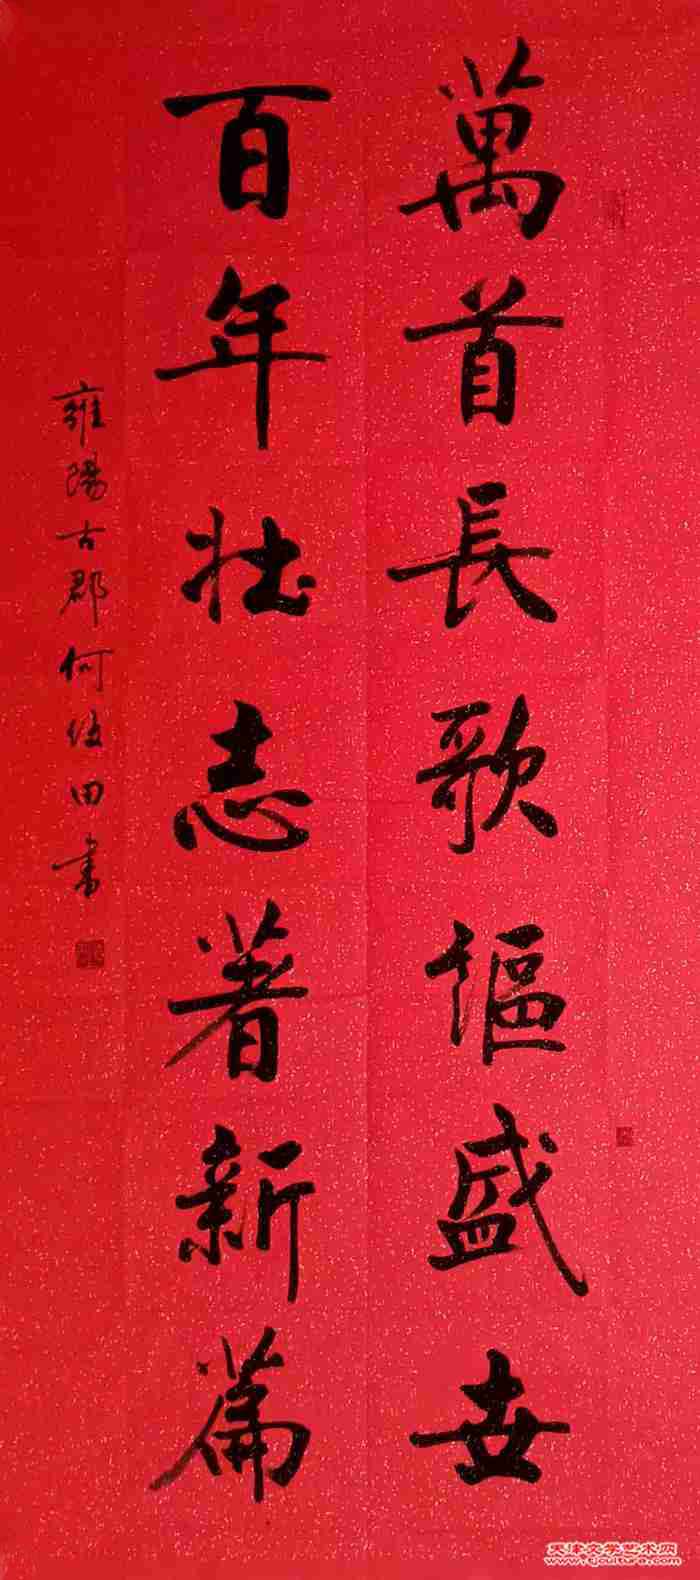 萬首長歌謳盛世
百年壯志著新篇
雍陽古郡何俊田書
天津文学艺术网
www.tjculture.com